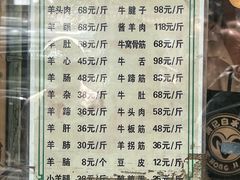 羊头肉 68元/斤 牛腱子 98元/斤
羊 68元/斤 酱羊肉 118元/斤
羊肚 68元/斤 牛窝骨筋 68元/斤
羊心 45元/斤 牛舌 98元/斤
羊肠 48元/斤 牛蹄筋 68元/斤
羊杂 38元/斤 牛肚 68元/斤
羊蹄 48元/斤 牛头肉 58元/斤
羊肝 36元/斤 牛板筋 48元/斤
羊肺 36元/斤 羊拐筋 36元/斤
羊脑 8元/个 豆皮 12元/斤
小羊腿